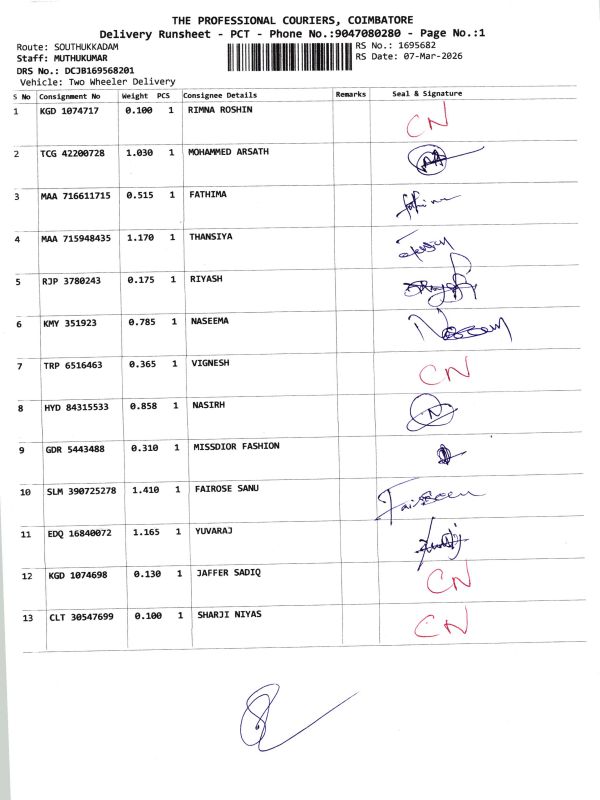 THE PROFESSIONAL COURIERS, COIMBATORE
Delivery Runsheet - PCT - Phone No.:9047080280 - Page No.:1
Route: SOUTHUKKADAM RS No.: 1695682
Staff: MUTHUKUMAR RS Date: 07-Mar-2026
DRS No.: DCJB169568201
Vehicle: Two Wheeler Delivery
S No Consignment No Weight PCS Consignee Details Remarks Seal & Signature
1 KGD 1074717 0.100 1 RIMNA ROSHIN CN
2 TCG 42200728 1.030 1 MOHAMMED ARSATH
3 MAA 716611715 0.515 1 FATHIMA fathima
4 MAA 715948435 1.170 1 THANSIYA
5 RJP 3780243 0.175 1 RIYASH
6 KMY 351923 0.785 1 NASEEMA
7 TRP 6516463 0.365 1 VIGNESH CN
8 HYD 84315533 0.858 1 NASIRH N
9 GDR 5443488 0.310 1 MISSDIOR FASHION
10 SLM 390725278 1.410 1 FAIROSE SANU
11 EDQ 16840072 1.165 1 YUVARAJ
12 KGD 1074698 0.130 1 JAFFER SADIQ CN
13 CLT 30547699 0.100 1 SHARJI NIYAS CN